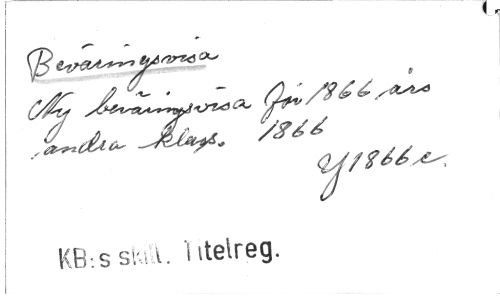 Beväringsvisa
Ny beväringsvisa för 1866 års
andra klass. 1866
Y1866c.
KB:s skill. Titelreg.